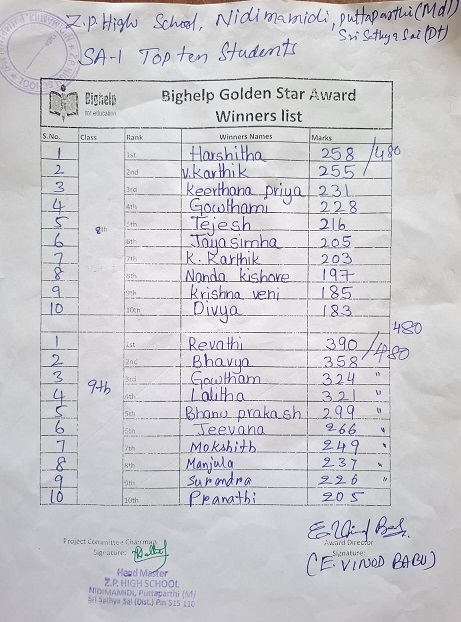 Z.P. High School, Nidimamidi, Puttaparthi (Md)
Sri Sathya Sai (Dt)
SA-1 Top ten Students
Bighelp
for education
Bighelp Golden Star Award
Winners list
S.No. Class Rank Winners Names Marks
1 1st Harshitha 258 / 480
2 2nd V. Karthik 255
3 3rd Keerthana priya 231
4 4th Gowthami 228
5 8th 5th Tejesh 216
6 6th Jayasimha 205
7 7th K. Karthik 203
8 8th Nanda kishore 197
9 9th Krishna veni 185
10 10th Divya 183
480
1 1st Revathi 390 / 480
2 2nd Bhavya 358
3 9th 3rd Gowtham 324 "
4 4th Lalitha 321 "
5 5th Bhanu prakash 299 "
6 6th Jeevana 266 "
7 7th Mokshith 249 "
8 8th Manjula 237 "
9 9th Surendra 226 "
10 10th Pranathi 205
Project Committee Chairman
Signature:
Award Director
Signature:
(E. VINOD BABU)
Head Master
Z.P. HIGH SCHOOL
NIDIMAMIDI, Puttaparthi (M)
Sri Sathya Sai (Dist.) Pin 515 110